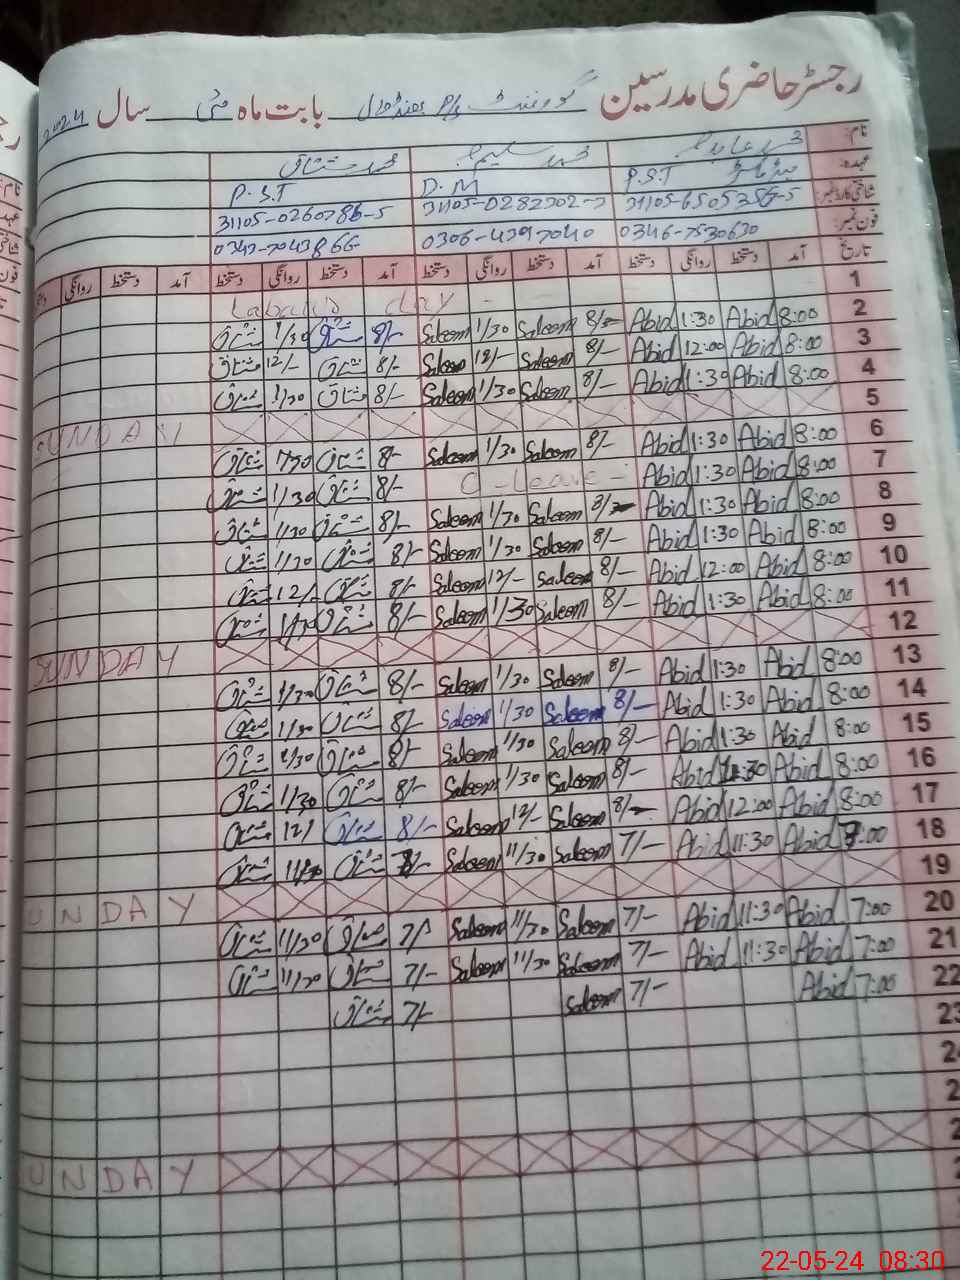 رجسٹر حاضری مدرسین گورنمنٹ بابت ماہ مئی سال 2024
نام: محمد عابد محمد سلیم محمد مشتاق
عہدہ: P.S.T D.M P.S.T
شناختی کارڈ نمبر:
فون نمبر: 0346-7530630 0306-4397040
تاریخ آمد دستخط روانگی دستخط آمد دستخط روانگی دستخط آمد دستخط روانگی دستخط آمد دستخط روانگی
1 day
2 8:00 Abid 1:30 Abid 8/- Saleem 1/30 Saleem 8/- مشتاق 1/30 مشتاق
3 8:00 Abid 12:00 Abid 8/- Saleem 12/- Saleem 8/- مشتاق 12/- مشتاق
4 8:00 Abid 1:30 Abid 8/- Saleem 1/30 Saleem 8/- مشتاق 1/30 مشتاق
5 SUNDAY
6 8:00 Abid 1:30 Abid 8/- Saleem 1/30 Saleem 8/- مشتاق 1/30 مشتاق
7 8:00 Abid 1:30 Abid C-Leave 8/- مشتاق 1/30 مشتاق
8 8:00 Abid 1:30 Abid 8/- Saleem 1/30 Saleem 8/- مشتاق 1/30 مشتاق
9 8:00 Abid 1:30 Abid 8/- Saleem 1/30 Saleem 8/- مشتاق 1/30 مشتاق
10 8:00 Abid 12:00 Abid 8/- Saleem 12/- Saleem 8/- مشتاق 12/- مشتاق
11 8:00 Abid 1:30 Abid 8/- Saleem 1/30 Saleem 8/- مشتاق 1/30 مشتاق
12 SUNDAY
13 8:00 Abid 1:30 Abid 8/- Saleem 1/30 Saleem 8/- مشتاق 1/30 مشتاق
14 8:00 Abid 1:30 Abid 8/- Saleem 1/30 Saleem 8/- مشتاق 1/30 مشتاق
15 8:00 Abid 1:30 Abid 8/- Saleem 1/30 Saleem 8/- مشتاق 1/30 مشتاق
16 8:00 Abid 1:30 Abid 8/- Saleem 1/30 Saleem 8/- مشتاق 1/30 مشتاق
17 8:00 Abid 12:00 Abid 8/- Saleem 12/- Saleem 8/- مشتاق 12/ مشتاق
18 7:00 Abid 11:30 Abid 7/- Saleem 11/30 Saleem 7/- مشتاق 11/30 مشتاق
19 UNDAY
20 7:00 Abid 11:30 Abid 7/- Saleem 11/30 Saleem 7/- مشتاق 11/30 مشتاق
21 7:00 Abid 11:30 Abid 7/- Saleem 11/30 Saleem 7/- مشتاق 11/30 مشتاق
22 7:00 Abid 7/- Saleem 7/- مشتاق
23
2
2
2
UNDAY
22-05-24 08:30